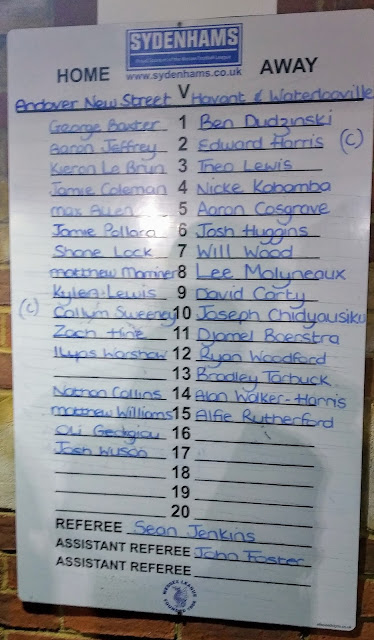 SYDENHAMS
HOME www.sydenhams.co.uk AWAY
Andover New Street V Havant & Waterlooville
George Baxter 1 Ben Dudzinski
Aaron Jeffrey 2 Edward Harris (C)
Kieron Le Brun 3 Theo Lewis
Jamie Coleman 4 Nicke Kabamba
Max Allen 5 Aaron Cosgrave
Jamie Pollard 6 Josh Huggins
Shane Lock 7 Will Wood
Matthew 8 Lee Molyneaux
Kylen Lewis 9 David Carty
(C) Callum Sweeney 10 Joseph Chidyausiku
Zach Hine 11 Djamel Boerstra
12 Ryan Woodford
13 Bradley Tarbuck
Nathan Collins 14 Alan Walker-Harris
Matthew Williams 15 Alfie Rutherford
Oli Georgiou 16
Josh Wilson 17
18
19
20
REFEREE Sean Jenkins
ASSISTANT REFEREE John Foster
ASSISTANT REFEREE
WESSEX LEAGUE